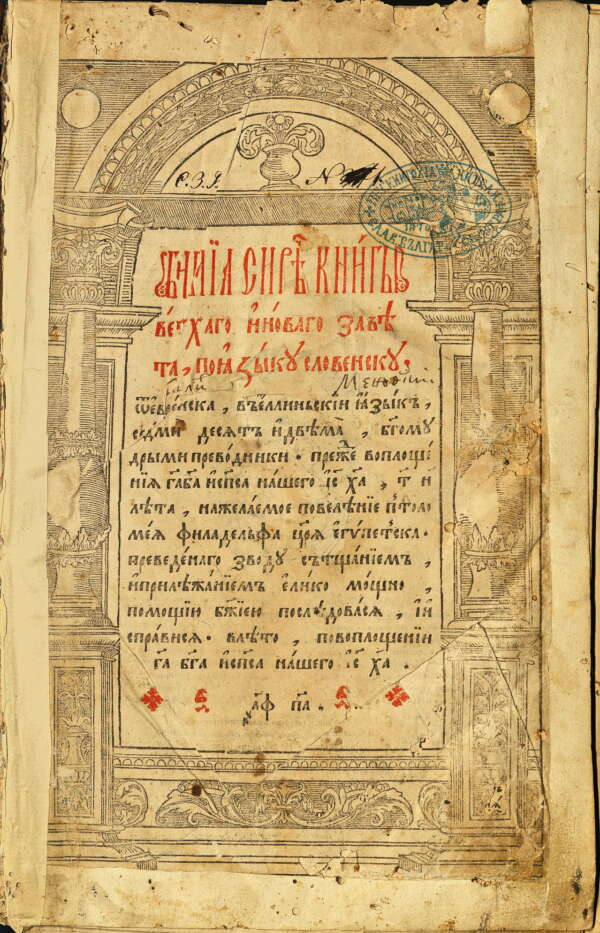 С. З. I. №
БІ́БЛІА СИРѢ́Ч КНИ́ГЫ
ВЕ́ТХАГО И҆ НО́ВАГО ЗАВѢ́
ТА, ПОꙖ҆ЗЫ́КУ СЛОВЕ́НСКУ,
Ѿ Є҆ВРЕ́ЙСКА, ВЪЄ҆́ЛЛИНЬСКІЙ Ꙗ҆ЗЫ́КЪ,
СЕ́ДМИ ДЕСЯ́ТЪ И҆ДВѢМА̀, БГ҃ОМУ
ДРЫМИ ПРЕВО́ДНИКИ. ПРЕ́ЖЕ ВОПЛОЩЕ́
НІЯ ГД҃А БГ҃А И҆СП҃СА НА́ШЕГО І҆С҃ ХА҃, Т҃ И҆
ЛѢ́ТА, НАЖЕЛА́ЕМОЕ ПОВЕЛѢ́НІЕ ПТОЛО
МЕ́Я ФИЛАДЕ́ЛЬФА ЦР҃Я Є҆ГИ́ПЕТСКА.
ПРЕВЕДЕ́НАГО ЗВО́ДУ СЪТЩА́НІЕМЪ,
И҆ПРИЛѢЖА́НІЕМЪ Є҆ЛИ́КО МО́ЩНО,
ПО́МОЩІЮ БЖ҃ІЕЮ ПОСЛѢ́ДОВАСЯ, И҆И
СПРА́ВИСЯ. ВЛѢ́ТО, ПОВОПЛОЩЕ́НІИ
ГД҃А БГ҃А И҆СП҃СА НА́ШЕГО І҆С҃ ХА҃.
҂АФ ПА҃.